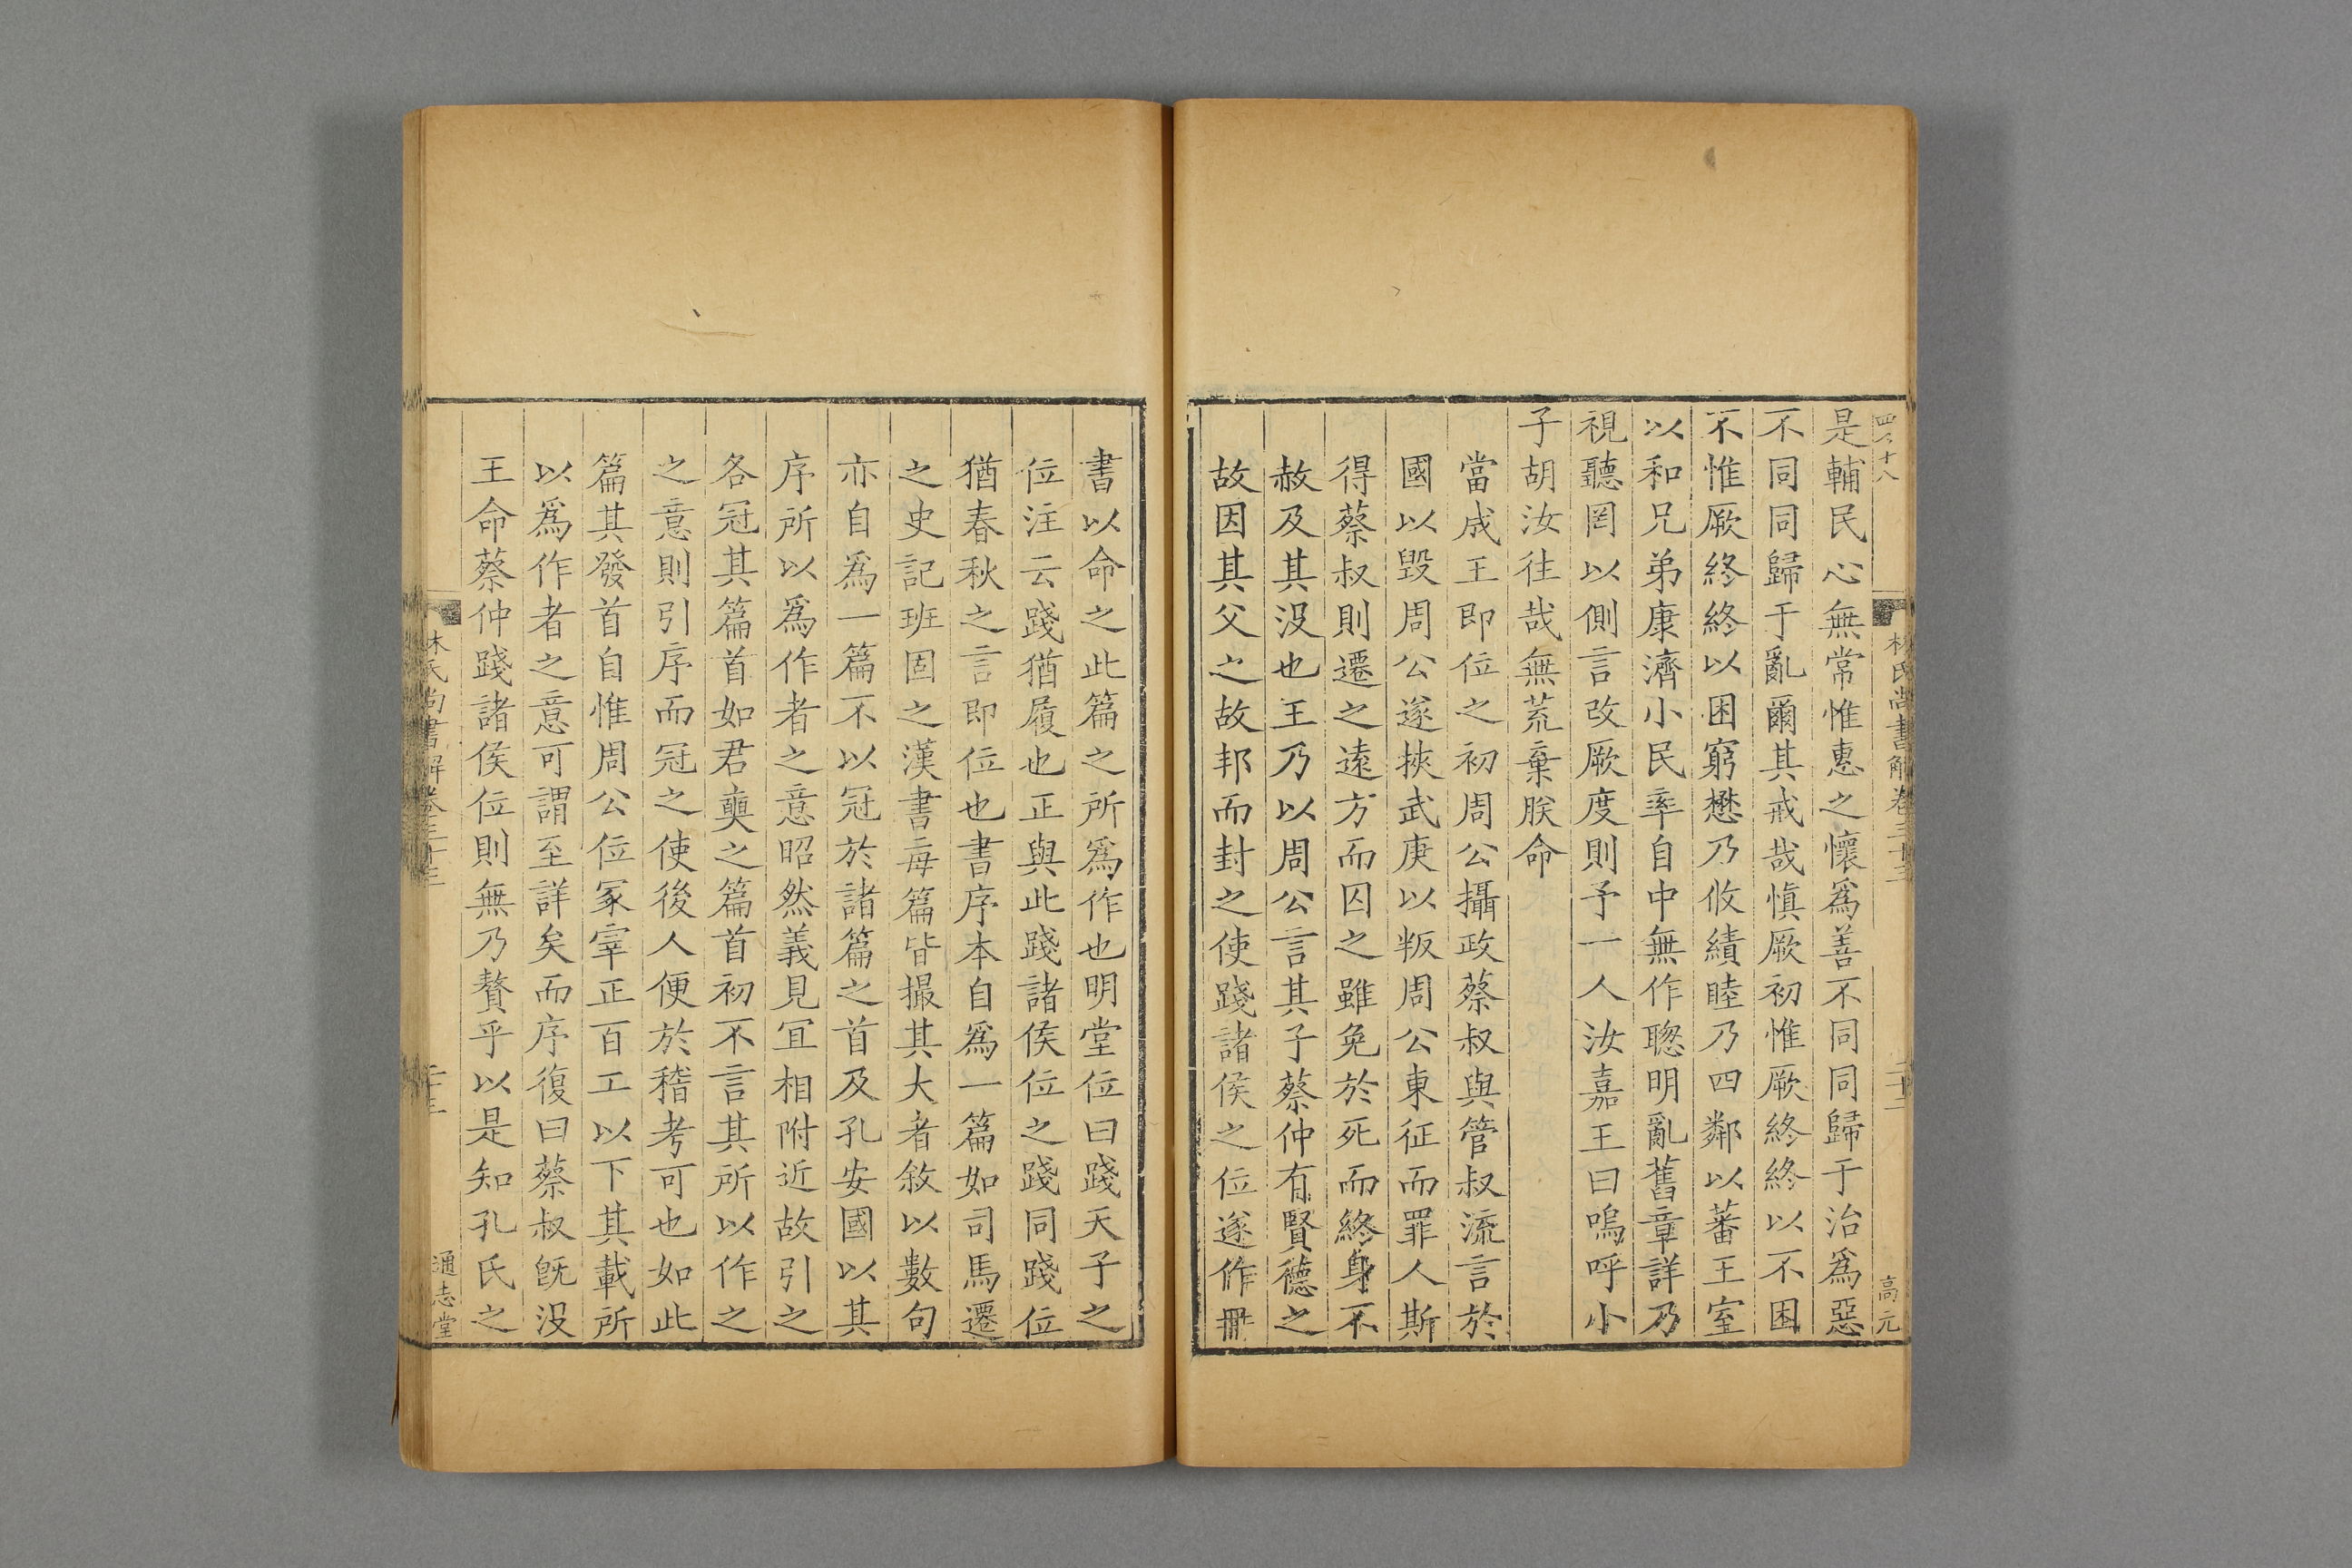 四百十八
林氏尚書解卷三十三
二十二
高元
是輔民心無常惟惠之懷爲善不同同歸于治爲惡
不同同歸于亂爾其戒哉慎厥初惟厥終終以不困
不惟厥終終以困窮懋乃攸績睦乃四鄰以蕃王室
以和兄弟康濟小民率自中無作聦明亂舊章詳乃
視聽罔以側言改厥度則予一人汝嘉王曰嗚呼小
子胡汝往哉無荒棄朕命
當成王即位之初周公攝政蔡叔與管叔流言於
國以毀周公遂挾武庚以叛周公東征而罪人斯
得蔡叔則遷之遠方而囚之雖免於死而終身不
赦及其没也王乃以周公言其子蔡仲有賢德之
故因其父之故邦而封之使踐諸侯之位遂作冊
書以命之此篇之所爲作也明堂位曰踐天子之
位注云踐猶履也正與此踐諸侯位之踐同踐位
猶春秋之言即位也書序本自爲一篇如司馬遷
之史記班固之漢書每篇皆撮其大者敘以數句
亦自爲一篇不以冠於諸篇之首及孔安國以其
序所以爲作者之意昭然義見宜相附近故引之
各冠其篇首如君奭之篇首初不言其所以作之
之意則引序而冠之使後人便於稽考可也如此
篇其發首自惟周公位冢宰正百工以下其載所
以爲作者之意可謂至詳矣而序復曰蔡叔旣没
王命蔡仲踐諸侯位則無乃贅乎以是知孔氏之
林氏尚書解卷三十三
二十三
通志堂